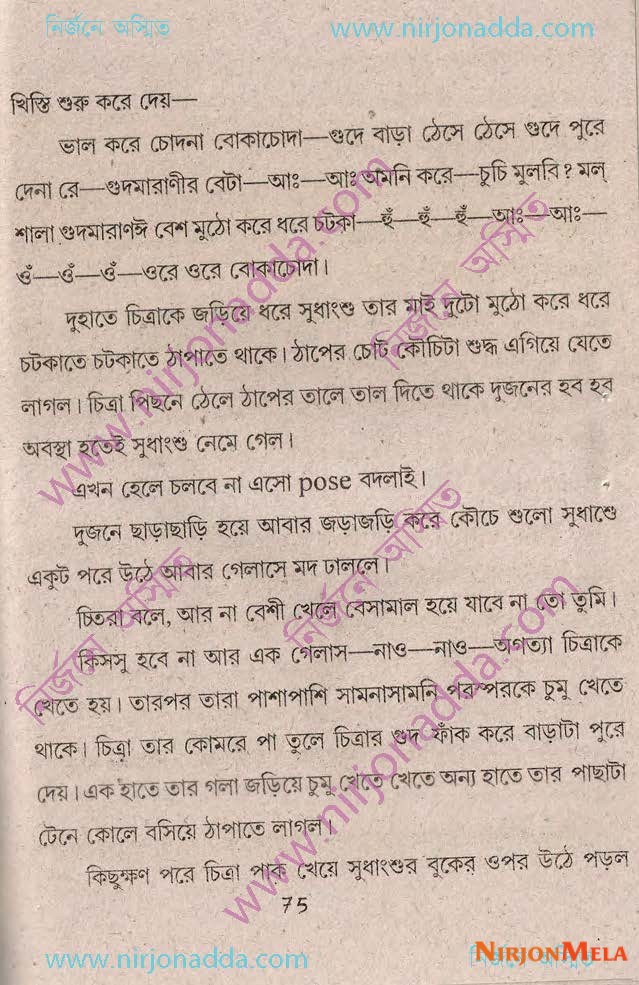 নির্জনে অস্মিত www.nirjonadda.com
খিস্তি শুরু করে দেয়—
ভাল করে চোদনা বোকাচোদা—গুদে বাড়া ঠেসে ঠেসে গুদে পুরে
দেনা রে—গুদমারাণীর বেটা—আঃ—আঃ অমনি করে—চুচি মুলবি ? মল্
শালা গুদমারাণঈ বেশ মুঠো করে ধরে চটকা—হুঁ—হুঁ—হুঁ—আঃ—আঃ—
ওঁ—ওঁ—ওঁ—ওরে ওরে বোকাচোদা।
দুহাতে চিত্রাকে জড়িয়ে ধরে সুধাংশু তার মাই দুটো মুঠো করে ধরে
চটকাতে চটকাতে ঠাপাতে থাকে। ঠাপের চোট কৌচিটা শুদ্ধ এগিয়ে যেতে
লাগল। চিত্রা পিছনে ঠেলে ঠাপের তালে তাল দিতে থাকে দুজনের হব হব
অবস্থা হতেই সুধাংশু নেমে গেল।
এখন হেলে চলবে না এসো pose বদলাই।
দুজনে ছাড়াছাড়ি হয়ে আবার জড়াজড়ি করে কৌচে শুলো সুধাশে
একুট পরে উঠে আবার গেলাসে মদ ঢাললে।
চিতরা বলে, আর না বেশী খেলে বেসামাল হয়ে যাবে না তো তুমি।
কিসসু হবে না আর এক গেলাস—নাও—নাও—অগত্যা চিত্রাকে
খেতে হয়। তারপর তারা পাশাপাশি সামনাসামনি পরস্পরকে চুমু খেতে
থাকে। চিত্রা তার কোমরে পা তুলে চিত্রার গুদ ফাঁক করে বাড়াটা পুরে
দেয়। এক হাতে তার গলা জড়িয়ে চুমু খেতে খেতে অন্য হাতে তার পাছাটা
টেনে কোলে বসিয়ে ঠাপাতে লাগল।
কিছুক্ষণ পরে চিত্রা পাক খেয়ে সুধাংশুর বুকের ওপর উঠে পড়ল
75
www.nirjonadda.com
নির্জনে অস্মিত
www.nirjonadda.com নির্জনে অস্মিত
নির্জনে অস্মিত
নির্জনে অস্মিত
www.nirjonadda.com
NIRJONMELA